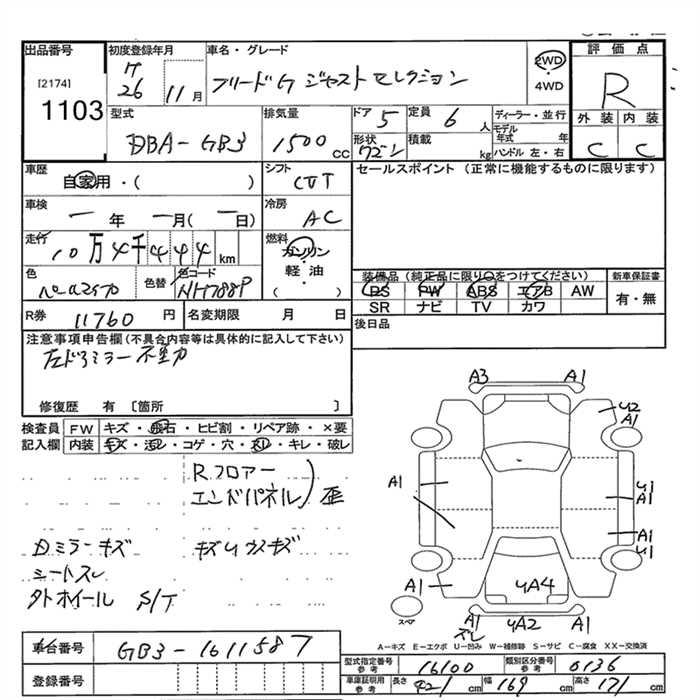 出品番号 初度登録年月 車名・グレード 評価点
[2174] 1103 26 11月 フリードG ジャストセレクション 2WD・4WD R
外装 内装
C C
型式 排気量 ドア 5 定員 6人 ディーラー・並行
DBA-GB3 1500cc 形状 ワゴン 積載 kg モデル年式 年 ハンドル 左・右
車歴 シフト セールスポイント (正常に機能するものに限ります)
自家用・( ) CVT
車検 冷房
年 月( 日) AC
走行 燃料
10万4千444km ガソリン 軽・油 ( )
色 色替 色コード 装備品 (純正品に限り○をつけてください) 新車保証書
パールホワイト NH788P PS PW ABS エアB AW 有・無
SR ナビ TV カワ
R券 11760円 名変期限 月 日 後日品
注意事項申告欄(不具合内容等は具体的に記入して下さい)
左ドアミラー不動
修復歴 有 [箇所 ]
検査員 FW キズ・飛石・ヒビ割・リペア跡・×要
記入欄 内装 キズ・汚レ・コゲ・穴・スレ・キレ・破レ
Rフロアー
エンドパネル 歪
Dミラーキズ キズUウスキズ
シートスレ
タトホイール S/T
A3 A1
U2
A1
A1
U1
A1
A1
U1
A1 A1
UA4
スペア
A1 UA2 A1
ズレ
A=キズ E=エクボ U=凹み W=補修跡 S=サビ C=腐食 XX=交換済
車台番号 GB3-1611587
登録番号
型式指定番号 参考 16100 類別区分番号 参考 0136
車庫証明用 参考 長さ 421cm 幅 169cm 高さ 171cm